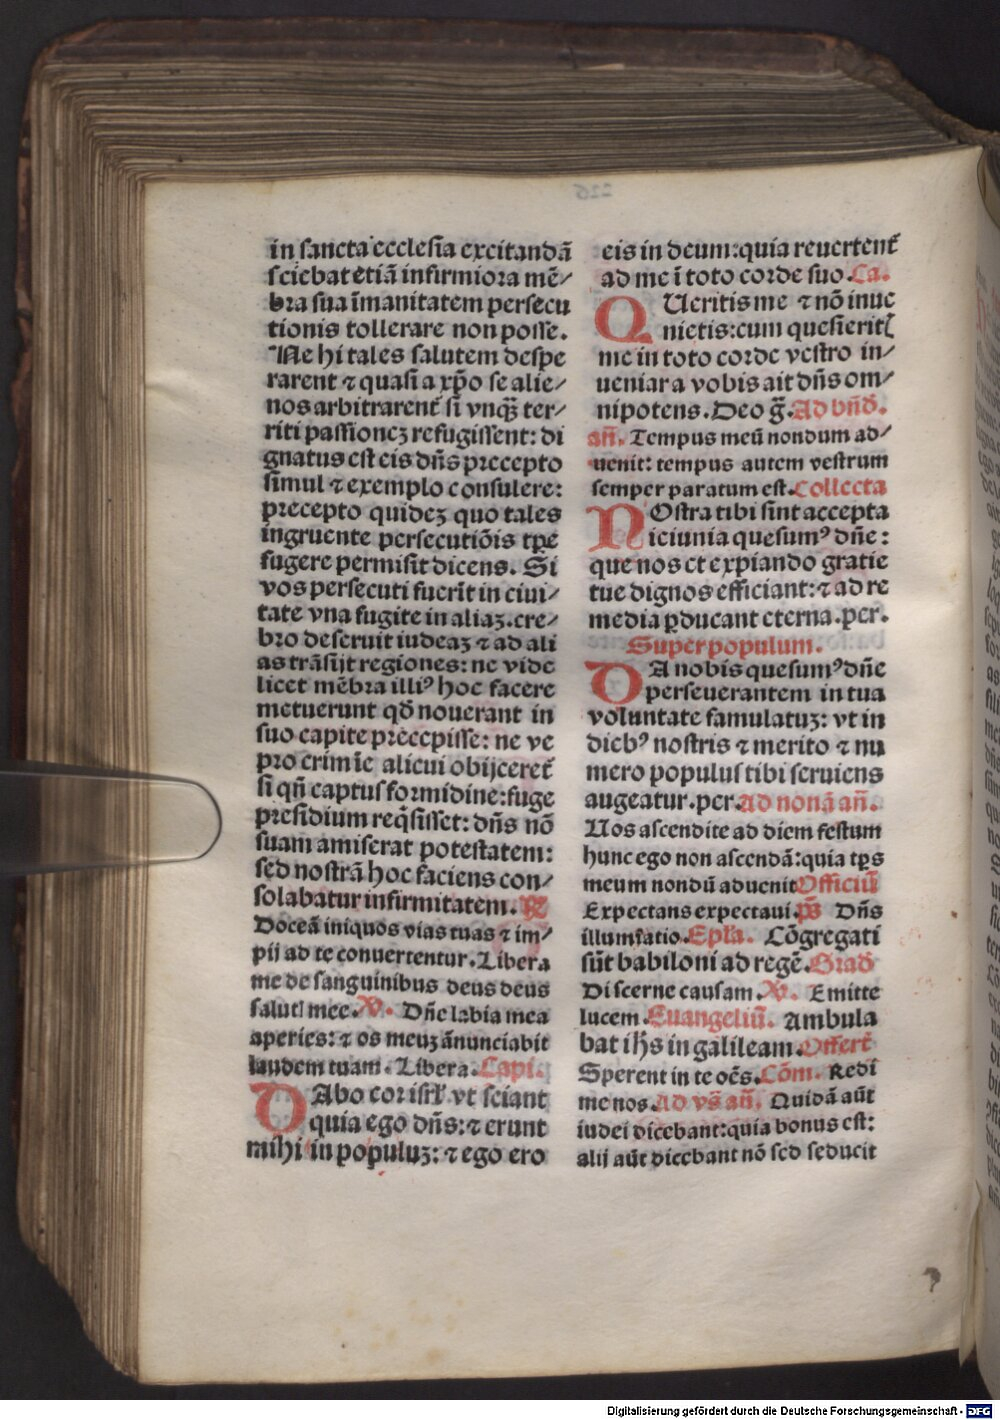 in sancta ecclesia excitandā
sciebat etiā infirmiora mē/
bra sua īmanitatem persecu
tionis tollerare non posse.
Ne hi tales salutem despe
rarent ⁊ quasi a xp̄o se alie/
nos arbitrarent᷑ si vnqꝫ ter/
riti passionēꝫ refugissent: di
gnatus est eis dn̄s precepto
simul ⁊ exemplo consulere:
precepto quideꝫ quo tales
ingruente persecutiōis tp̄e
fugere permisit dicens. Si
vos persecuti fuerīt in ciui/
tate vna fugite in aliaꝫ. cre/
bro deseruit iudeaꝫ ⁊ ad ali
as trāsijt regiones: ne vide
licet mēbra illiꝰ hoc facere
metuerunt qđ nouerant in
suo capite precepisse: ne ve
pro crimīe alicui obijceret᷑
si qn̄ captus formidine: fuge
presidium reqͥsisset: dn̄s nō
suam amiserat potestatem:
sed nostrā hoc faciens con/
solabatur infirmitatem. ℟
Doceā iniquos vias tuas ⁊ im/
pij ad te conuertentur. Libera
me de sanguinibus deus deus
salutꝭ mee. ℣. Dn̄e labia mea
aperies: ⁊ os meuꝫ ānunciabit
laudem tuam. Libera. Capi.
DAbo cor isrl̄ vt sciant
quia ego dn̄s: ⁊ erunt
mihi in populuꝫ: ⁊ ego ero
eis in deum: quia reuertent᷑
ad me ī toto corde suo. Ca.
QUeritis me ⁊ nō inue
nietis: cum quesieritꝭ
me in toto corde vestro in/
ueniar a vobis ait dn̄s om/
nipotens. Deo g̃. Ad bn̄d̄.
an̄. Tempus meū nondum ad/
uenit: tempus autem vestrum
semper paratum est. Collecta
NOstra tibi sint accepta
ieiunia quesumꝰ dn̄e:
que nos et expiando gratie
tue dignos efficiant: ⁊ ad re
media ꝑducant eterna. per.
Super populum.
DA nobis quesumꝰ dn̄e
perseuerantem in tua
voluntate famulatuꝫ: vt in
diebꝰ nostris ⁊ merito ⁊ nu
mero populus tibi seruiens
augeatur. per. Ad nonā an̄.
Uos ascendite ad diem festum
hunc ego non ascendā: quia tp̄s
meum nondū aduenit Officiū
Expectans expectaui. p̄s Dn̄s
illumīatio. Epl̄a. Cōgregati
sūt babiloni ad regē. Grad̄
Discerne causam. ℣. Emitte
lucem. Euangeliū. Ambula
bat ih̄s in galileam. Offert᷑
Sperent in te oēs. Cōm. Redi
me nos. Ad vs̄ an̄. Quidā aūt
iudei dicebant: quia bonus est:
alij aūt dicebant nō sed seducit
Digitalisierung gefördert durch die Deutsche Forschungsgemeinschaft - DFG